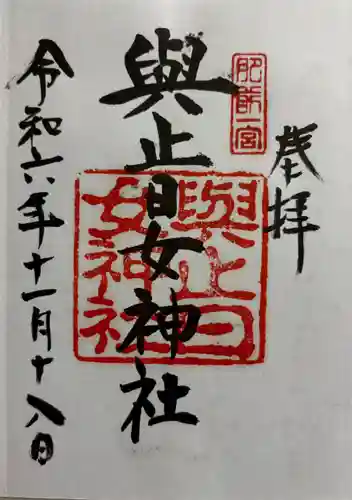 奉拝
肥前一宮
與止日女神社
與止日女神社
令和六年十一月十八日